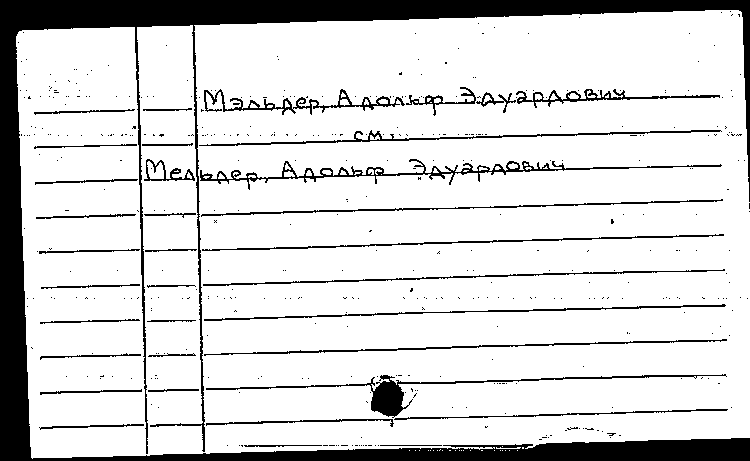 Мэльдер, Адольф Эдуардович
см.
Мельдер, Адольф Эдуардович